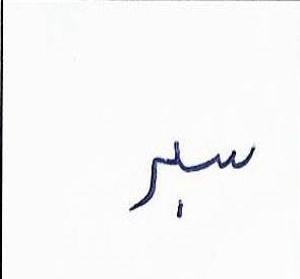 سبر